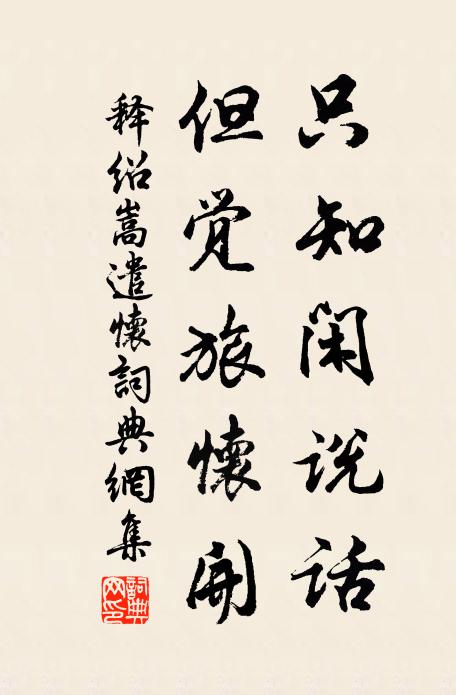 只知闲说话
但觉旅懷開
释绍嵩遣懷詞典網集
詞典網印